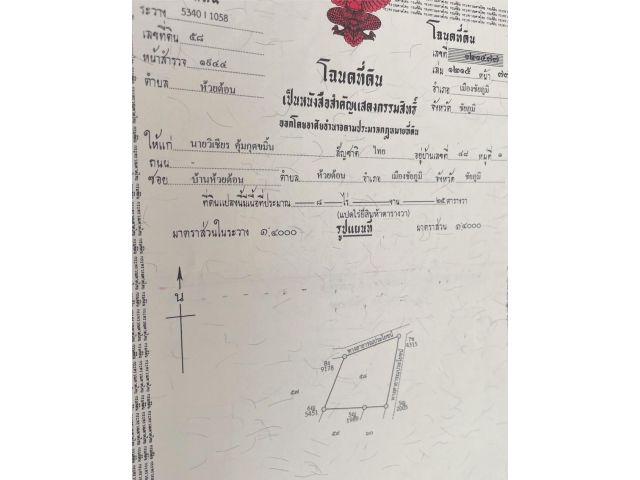 ระวาง 5340 I 1058
เลขที่ดิน ๕๘
หน้าสำรวจ ๑๙๔๔
ตำบล ห้วยต้อน
โฉนดที่ดิน
เลขที่
เล่ม ๑๒๑๕ หน้า ๗๗
อำเภอ เมืองชัยภูมิ
จังหวัด ชัยภูมิ
โฉนดที่ดิน
เป็นหนังสือสำคัญแสดงกรรมสิทธิ์
ออกโดยอาศัยอำนาจตามประมวลกฎหมายที่ดิน
ให้แก่ นายวิเชียร คุ้มกุดขมิ้น สัญชาติ ไทย อยู่บ้านเลขที่ ๔๘ หมู่ที่ ๑
ถนน
ซอย บ้านห้วยต้อน ตำบล ห้วยต้อน อำเภอ เมืองชัยภูมิ จังหวัด ชัยภูมิ
ที่ดินแปลงนี้มีเนื้อที่ประมาณ ๘ ไร่ งาน ๒๕ ตารางวา
(แปดไร่ยี่สิบห้าตารางวา)
มาตราส่วนในระวาง ๑:๔๐๐๐ รูปแผนที่ มาตราส่วน ๑:๔๐๐๐
น
ทางสาธารณประโยชน์
ทางสาธารณประโยชน์
9178
4315
๕๘
๕๗
5451
2005
๕๙ ๖๐